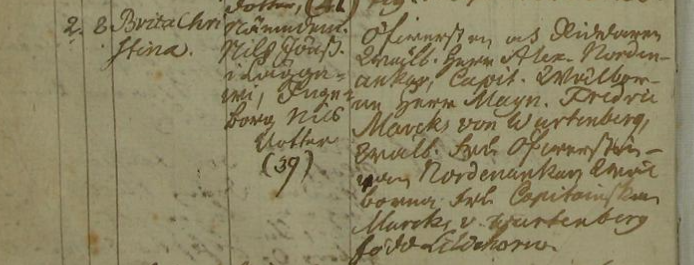 dotter, (42)
2. 8. Brita Chri
stina.
Nämndem.
Nils Jönss.
i
Inge-
borg Nils
dotter
(39)
Öfwersten och Riddaren
Wälb. Herr Alex. Norden-
ankar, Capit. Wälbor-
ne Herr Magn. Fredric
Marcks von Wurtenberg,
Wälb. Fru Öfwerstin-
nan Nordenankar, Wäl
borna Fru Capitainskan
Marcks v. Wurtenberg
född Lilliehorn.